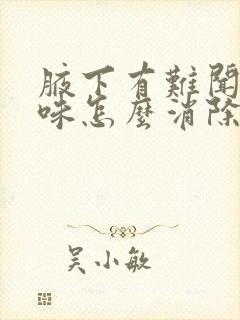 腋下有難聞
味怎麼消除
吳小敏